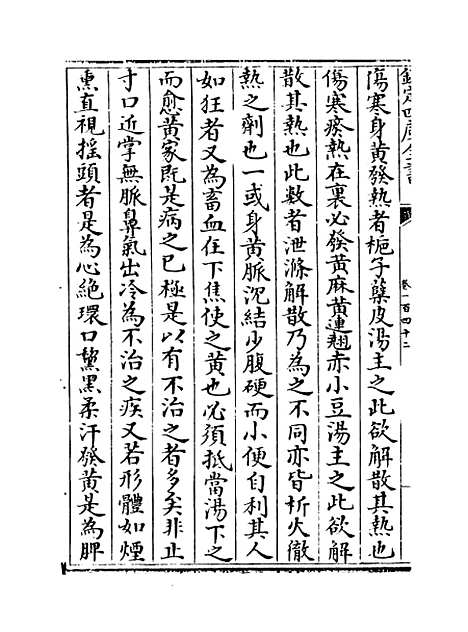 欽定四庫全書
卷一百四十二
傷寒身黃發熱者梔子蘗皮湯主之此欲解散其熱也
傷寒瘀熱在裏必發黃麻黃連翹赤小豆湯主之此欲解
散其熱也此數者泄滌解散乃為之不同亦皆析火徹
熱之劑也一或身黃脈沉結少腹硬而小便自利其人
如狂者又為蓄血住下焦使之黃也必須抵當湯下之
而愈黃家既是病之已極是以有不治之者多矣非止
寸口近掌無脈鼻氣出冷為不治之疾又若形體如煙
熏直視揺頭者是為心絶環口黧黑柔汗發黃是為脾